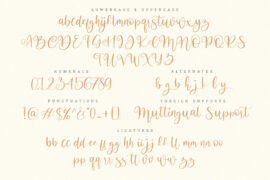 LOWERCASE & UPPERCASE
abcdefghijklmnopqrstuvwxyz
ABCDEFGHIJKLMNOPQRS
TUVWXYZ
NUMERALS
ALTERNATES
0123456789
b g h j k l y
PUNCTUATIONS
FOREIGN SUPPORTS
Multlingual Support
LIGATURES
bb cc dd ee ff gg hh ii jj ll mm nn oo
pp qq rr ss tt uu vv yy zz